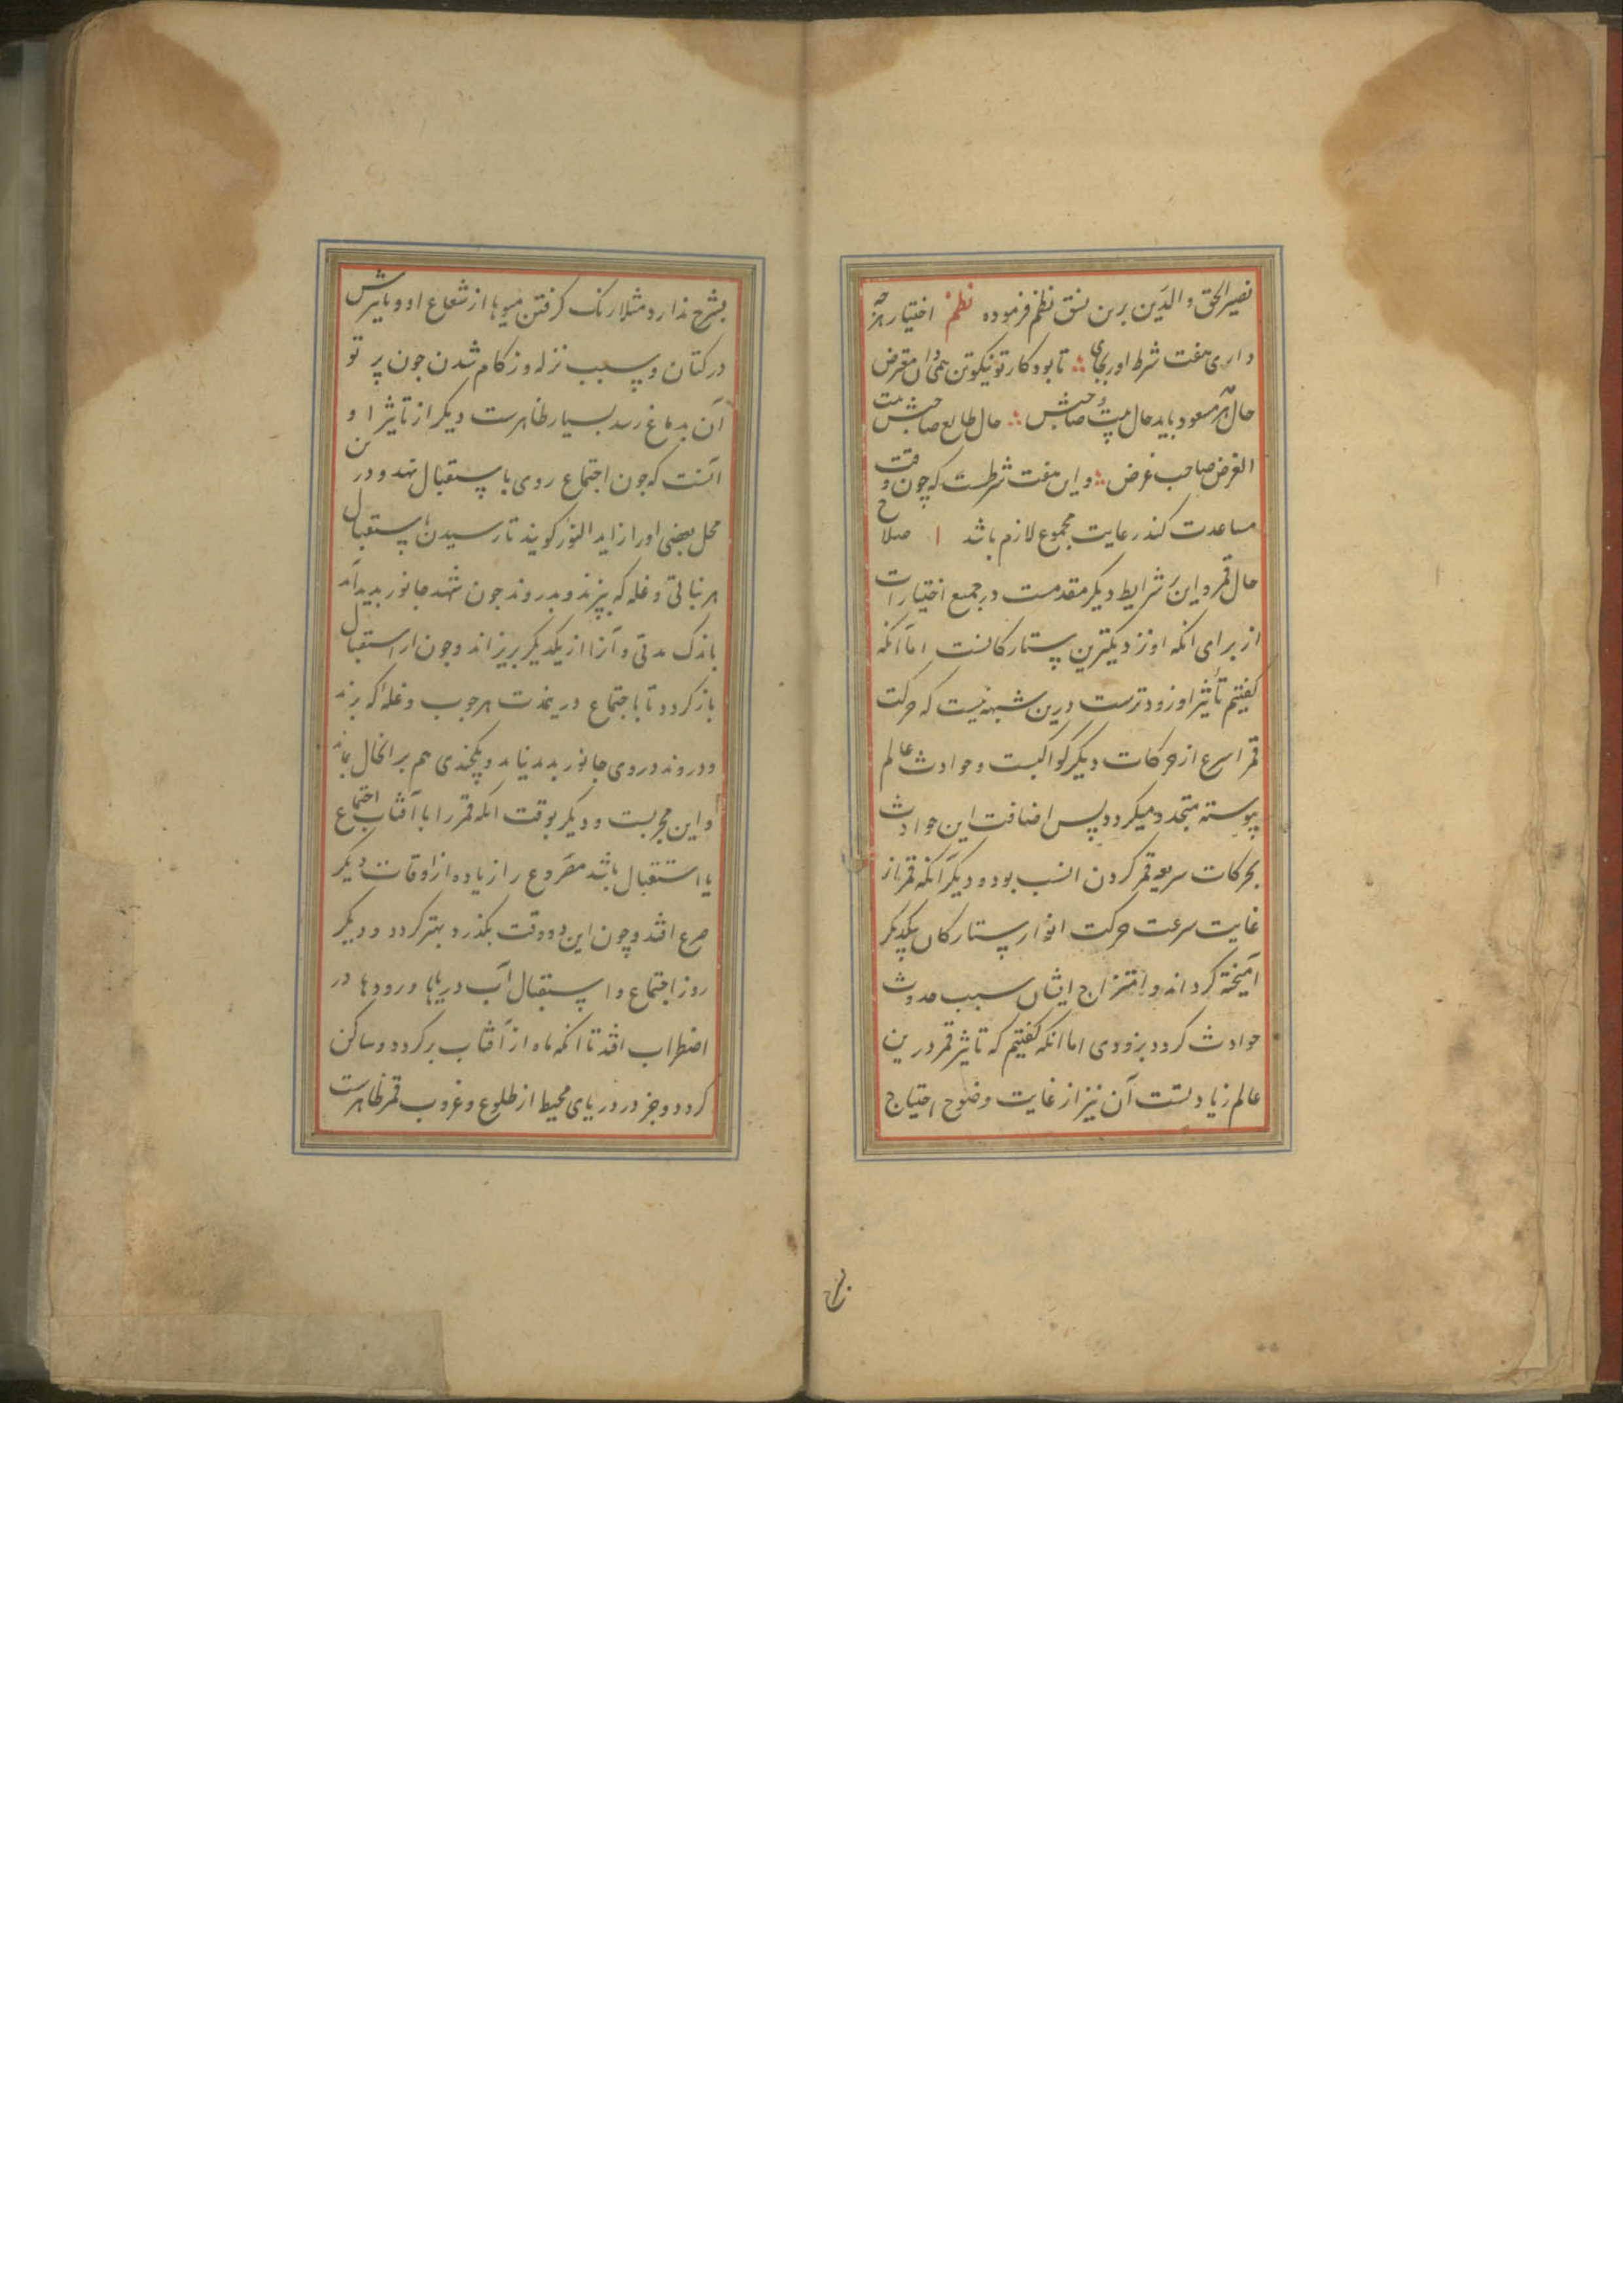 نصیر الحق و الدین برین نسق نظم فرموده نظم اختیار هرچه
داری هفت شرط اور بجای تا بود کار تو نیکوتر بی
حال مه مسعود باید حال بیت و صاحبش حال طالع صاحبش بیت
الغرض صاحب غرض و این هفت شرطست که چون وقت
مساعدت کند رعایت مجموع لازم باشد ا صلاح
حال قمر و این شرایط دیگر مقدمست در جمیع اختیارات
از برای انکه او نزدیکترین ستارکانست اما آنکه
کفتیم تأثیر او زودترست درین شبهه نیست که حرکت
قمر اسرع از حرکات دیگر کواکبست و حوادث عالم
پیوسته متجدد میکردد پس اضافت این حوادث
بحرکات سریعه قمر کردن انسب بود و دیگر آنکه قمر از
غایت سرعت حرکت انوار ستارکان بیکدیکر
آمیخته کرداند و امتزاج ایشان سبب حدوث
حوادث کردد بزودی اما انکه کفتیم که تاثیر قمر درین
عالم زیادتست آن نیز از غایت وضوح احتیاج
بشرح ندارد مثلا رنک کرفتن میوها از شعاع او و تاثیرش
در کتان و سبب نزله و زکام شدن چون پرتو
آن بدماغ رسد بسیار ظاهرست دیکر از تاثیر او
آنست که چون اجتماع روی باستقبال نهد و در
محل بعضی اورا زاید النور کویند تا رسیدن باستقبال
هر نباتی و غله که بپزند و بدروند چون شهد جانور بدید آید
باندک مدتی و آنرا از یکدیکر بریزاند و چون از استقبال
باز کردد تا باجتماع درین مدت هر چوب و غله که برند
و دروند در وی جانور بدید نیاید و یکچندی هم بر انحال بماند
و این مجربست و دیکر بوقت انکه قمر را با آفتاب اجتماع
یا استقبال باشد مصروع را زیاده از اوقات دیکر
صرع افتد و چون این دو وقت بکذرد بهتر کردد و دیکر
روز اجتماع و استقبال آب دریاها و رودها در
اضطراب افتد تا انکه ماه از آفتاب برکردد و ساکن
کردد و جزر در دریای محیط از طلوع و غروب قمر ظاهرست